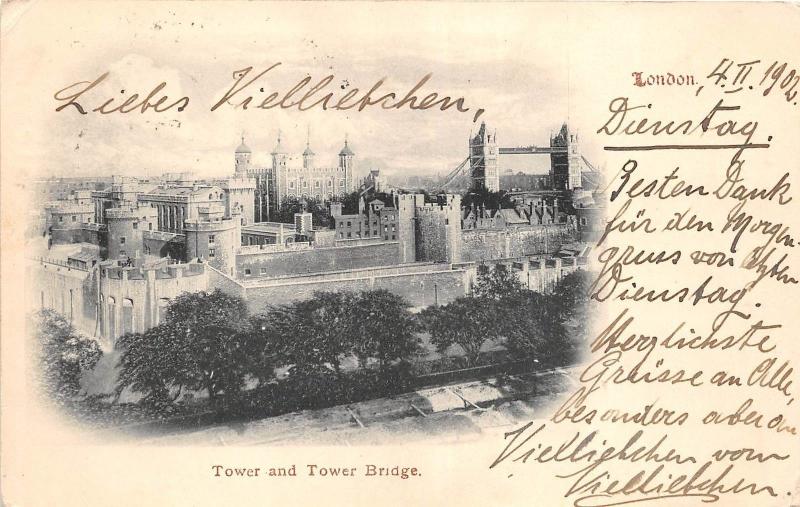 London. 4.II.1902
Dienstag.
Liebes Vielliebchen,
Besten Dank
für den Morgen-
gruss von letzten
Dienstag.
Herzlichste
Grüsse an Alle,
besonders aber an
Vielliebchen vom
Vielliebchen.
Tower and Tower Bridge.